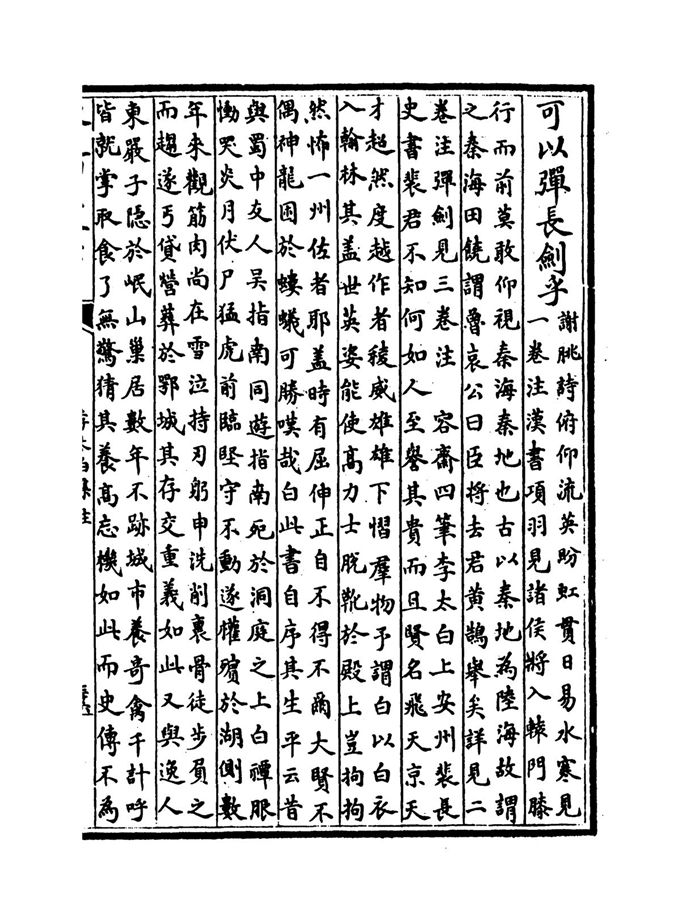 可以彈長劍乎
謝朓詩俯仰流英盼虹貫日易水寒見
一卷注漢書項羽見諸侯將入轅門膝
行而前莫敢仰視秦海秦地也古以秦地為陸海故謂
之秦海田饒謂魯哀公曰臣將去君黃鵠舉矣詳見二
卷注彈劍見三卷注 容齋四筆李太白上安州裴長
史書裴君不知何如人至譽其貴而且賢名飛天京天
才超然度越作者稜威雄雄下慴羣物予謂白以白衣
入翰林其盖世英姿能使高力士脫靴於殿上豈拘拘
然怖一州佐者耶盖時有屈伸正自不得不爾大賢不
偶神龍困於螻蟻可勝嘆哉白此書自序其生平云昔
與蜀中友人吳指南同遊指南死於洞庭之上白禫服
慟哭炎月伏尸猛虎前臨堅守不動遂權殯於湖側數
年來觀筋肉尚在雪泣持刃躬申洗削裹骨徒步負之
而趨遂丐貸營葬於鄂城其存交重義如此又與逸人
東嚴子隐於岷山巢居數年不跡城市養奇禽千計呼
皆就掌取食了無驚猜其養髙忘機如此而史傳不為